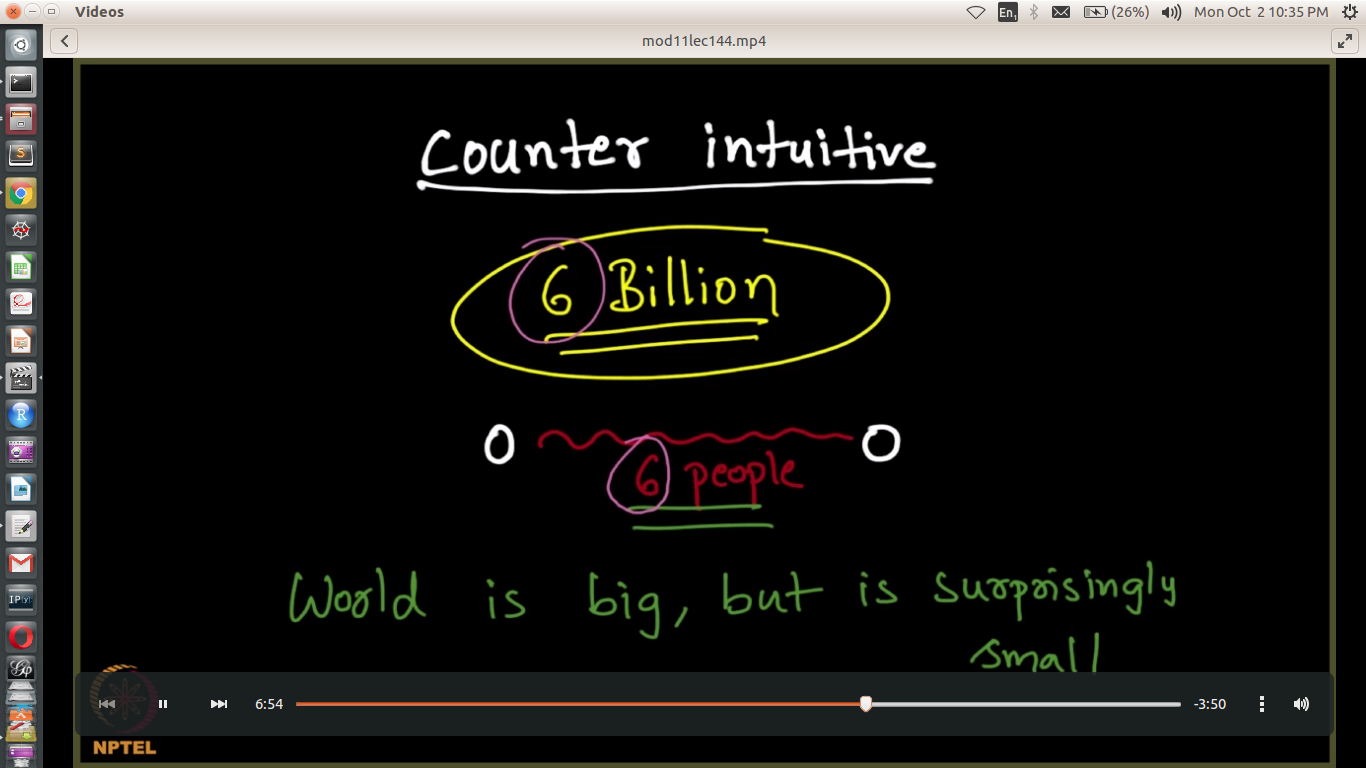 Videos
En1
(26%)
Mon Oct 2 10:35 PM
mod11lec144.mp4
Counter intuitive
6 Billion
O O
6 people
World is big, but is surprisingly
small
6:54
-3:50
NPTEL
S
R
IP[y]: